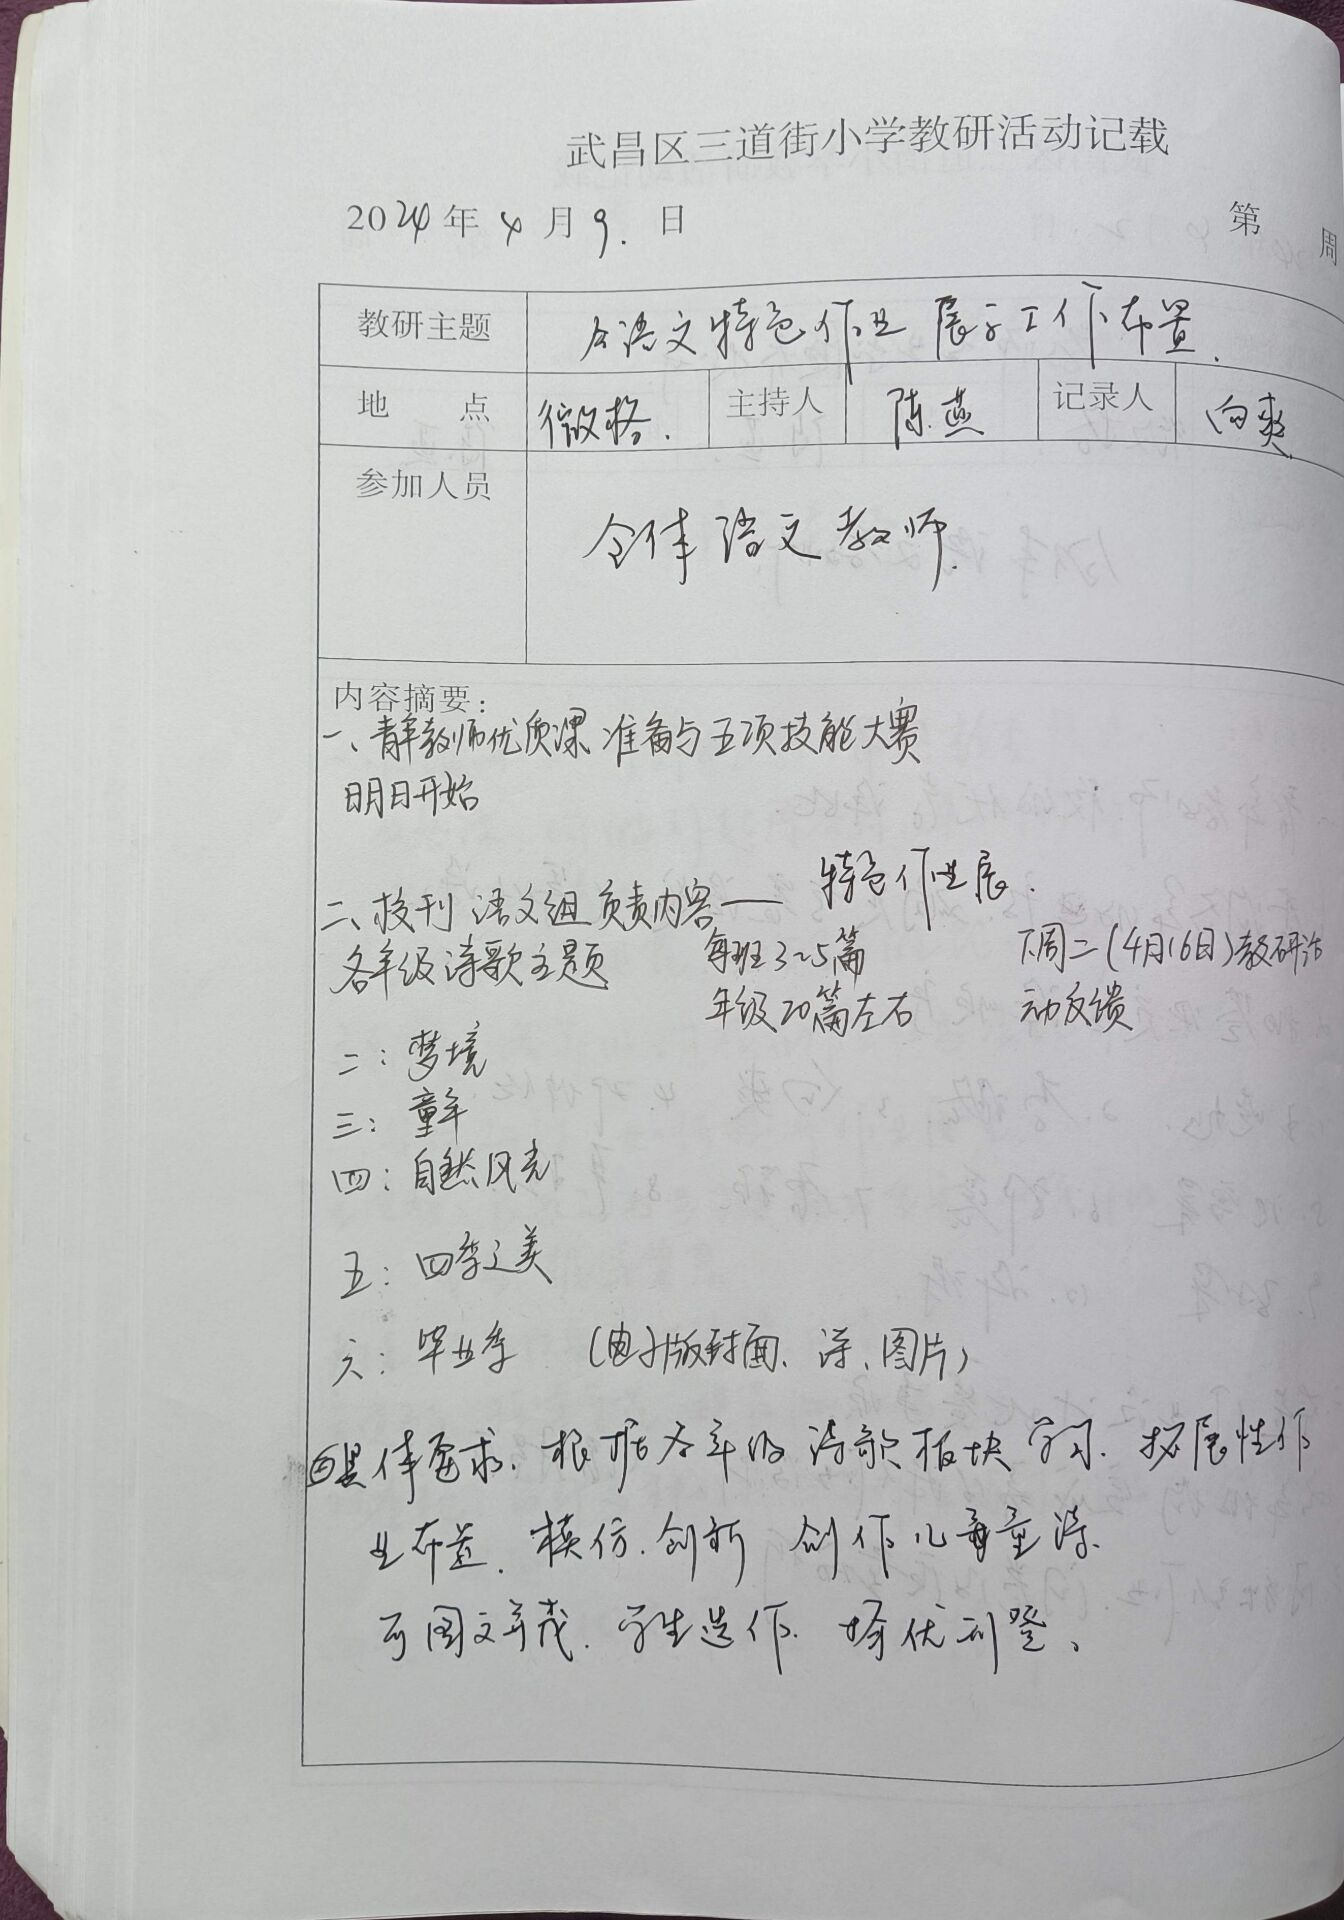 武昌区三道街小学教研活动记载
2024年4月9.日 第 周
教研主题 语文特色作业展示工作布置.
地 点 微格. 主持人 陈燕 记录人 向爽
参加人员 全体语文教师.
内容摘要:
一、青年教师优质课准备与五项技能大赛
明日开始
二、校刊 语文组负责内容—— 特色作业展.
各年级诗歌主题 每班3~5篇 下周二(4月16日)教研活
年级20篇左右 动反馈
二:梦境
三:童年
四:自然风光
五:四季之美
六:毕业季 (电子版封面、诗、图片)
具体要求.根据各年级诗歌板块学习.拓展性作
业布置.模仿.创新 创作儿童诗.
可图文并茂.学生选作.择优刊登。